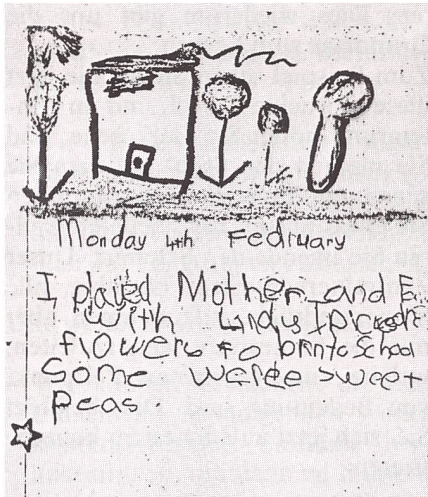 Monday 4th Fedruary
I played Mother and F
with Lindy I picked
flowers to brinto School
Some weree sweet
peas.